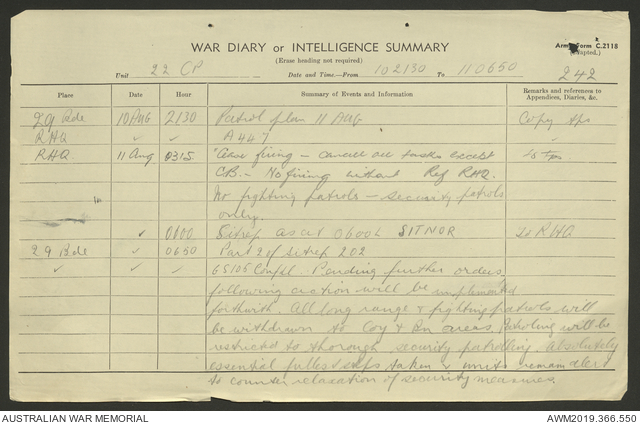 Army Form C.2118
(Adapted.)
WAR DIARY or INTELLIGENCE SUMMARY
(Erase heading not required)
Unit 22 CP Date and Time.—From 102130 To 110650 242
Place Date Hour Summary of Events and Information Remarks and references to Appendices, Diaries, &c.
29 Bde 10 Aug 2130 Patrol plan 11 Aug Copy tps
RHQ ✓ ✓ A447 ✓
RHQ 11 Aug 0315 "Cease firing – cancel all tasks except to Tps.
CB. – No firing without Ref RHQ.
No fighting patrols – security patrols
only.
✓ 0600 Sitrep as at 0600h SITNOR to RHQ
29 Bde ✓ 0650 Part 2 of sitrep 202
✓ ✓ ✓ 65105 Confd. Pending further orders,
following action will be implemented
forthwith. All long range & fighting patrols will
be withdrawn to Coy & Bn areas. Patrolling will be
restricted to thorough security patrolling. Absolutely
essential fullest steps taken & units remain alert
to counter relaxation of security measures.
AUSTRALIAN WAR MEMORIAL AWM2019.366.550